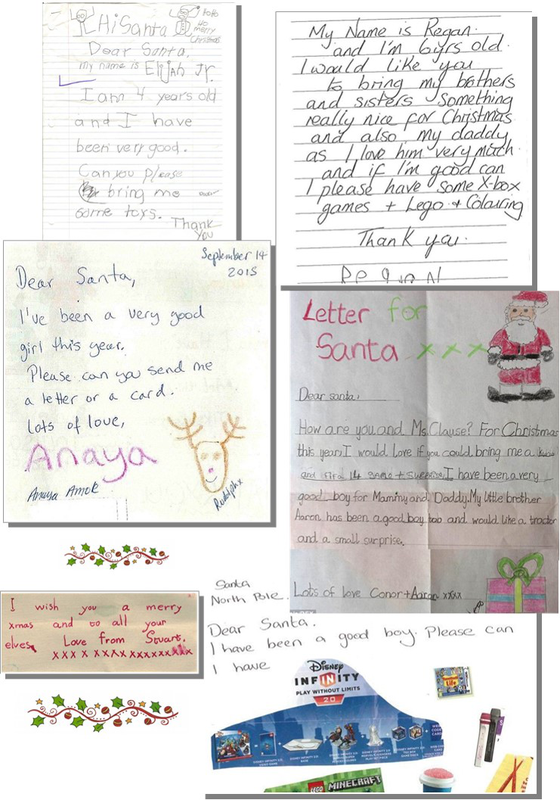 Hi Santa
HoHo
Merry
Christmas
Dear Santa,
my name is Elijah Jr.
I am 4 years old
and I have
been very good.
Can you please
bring me
some toys.
Thank
you
My Name is Regan.
and I'm 6yrs old.
I would like you
to bring my brothers
and sisters Something
really nice for Christmas
and also my daddy,
as I love him very much.
and if I'm good can
I please have some X-box
games + Lego + Colouring
Thank you.
Regan
September 14
2015
Dear Santa,
I've been a very good
girl this year.
Please can you send me
a letter or a card.
Lots of love,
Anaya
Anaya Amok
Rudolph x
Letter for
Santa x x x
Dear santa,
How are you and Ms. Clause? For Christmas
this year I would Love if you could bring me a
and I have been a very
good boy for Mammy and Daddy. My little brother
Aaron has been a good boy too and would like a tractor
and a small surprise.
Lots of love Conor + Aaron xxxx
I wish you a merry
xmas and to all your
elves, Love from Stuart.
x x x x x x x x x x x x x x
Santa
North Pole.
Dear Santa.
I have been a good boy. Please can
I have
Disney
INFINITY
PLAY WITHOUT LIMITS
2.0
MINECRAFT